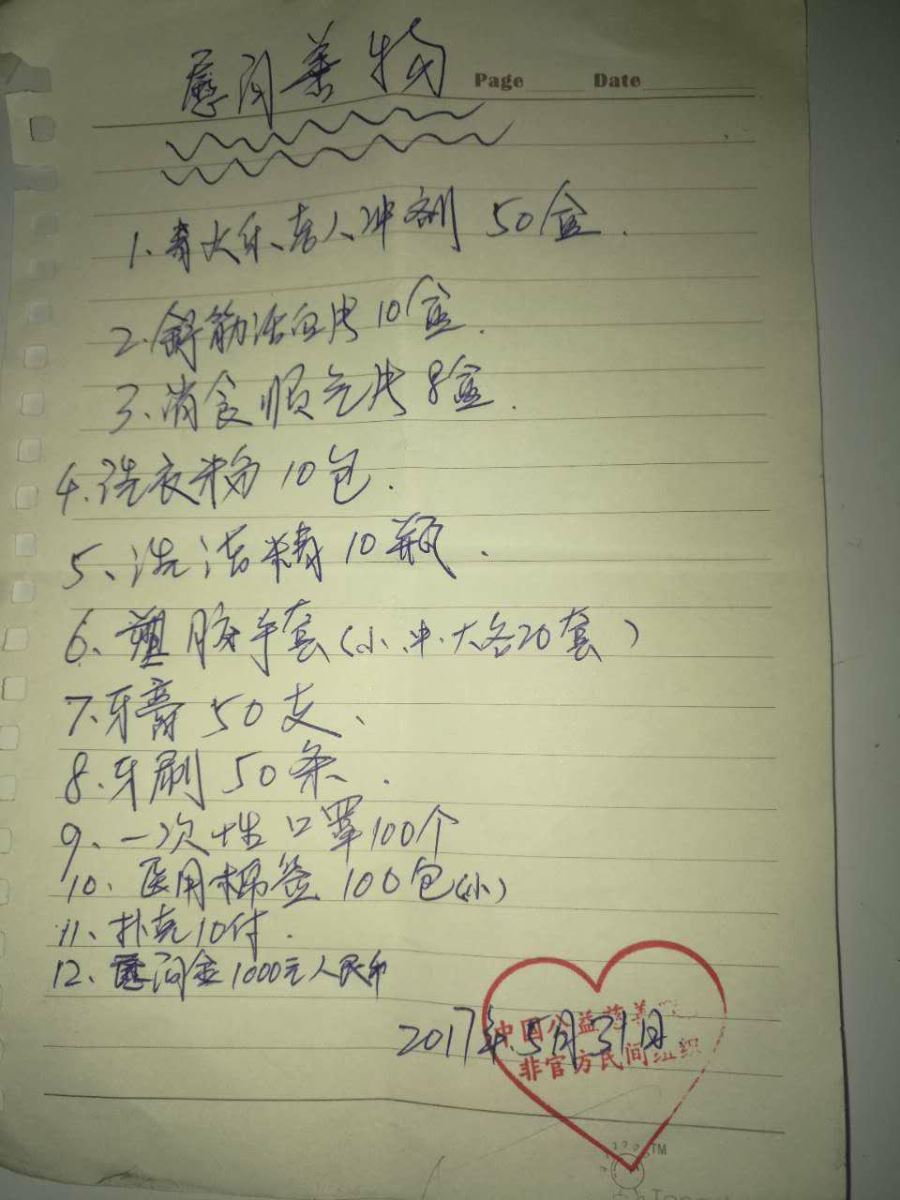 慰问善物
Page Date
1、寿大乐老人冲剂 50盒.
2、舒筋活血片10盒.
3、消食顺气片8盒.
4.洗衣粉10包.
5、洗洁精10瓶.
6、塑胶手套(小.中.大各20套)
7、牙膏50支、
8.牙刷50条.
9、一次性口罩100个
10、医用棉签100包(小)
11、扑克10付.
12、慰问金1000元人民币
2017年5月31日
中国公益慈善
非官方民间组织
TM